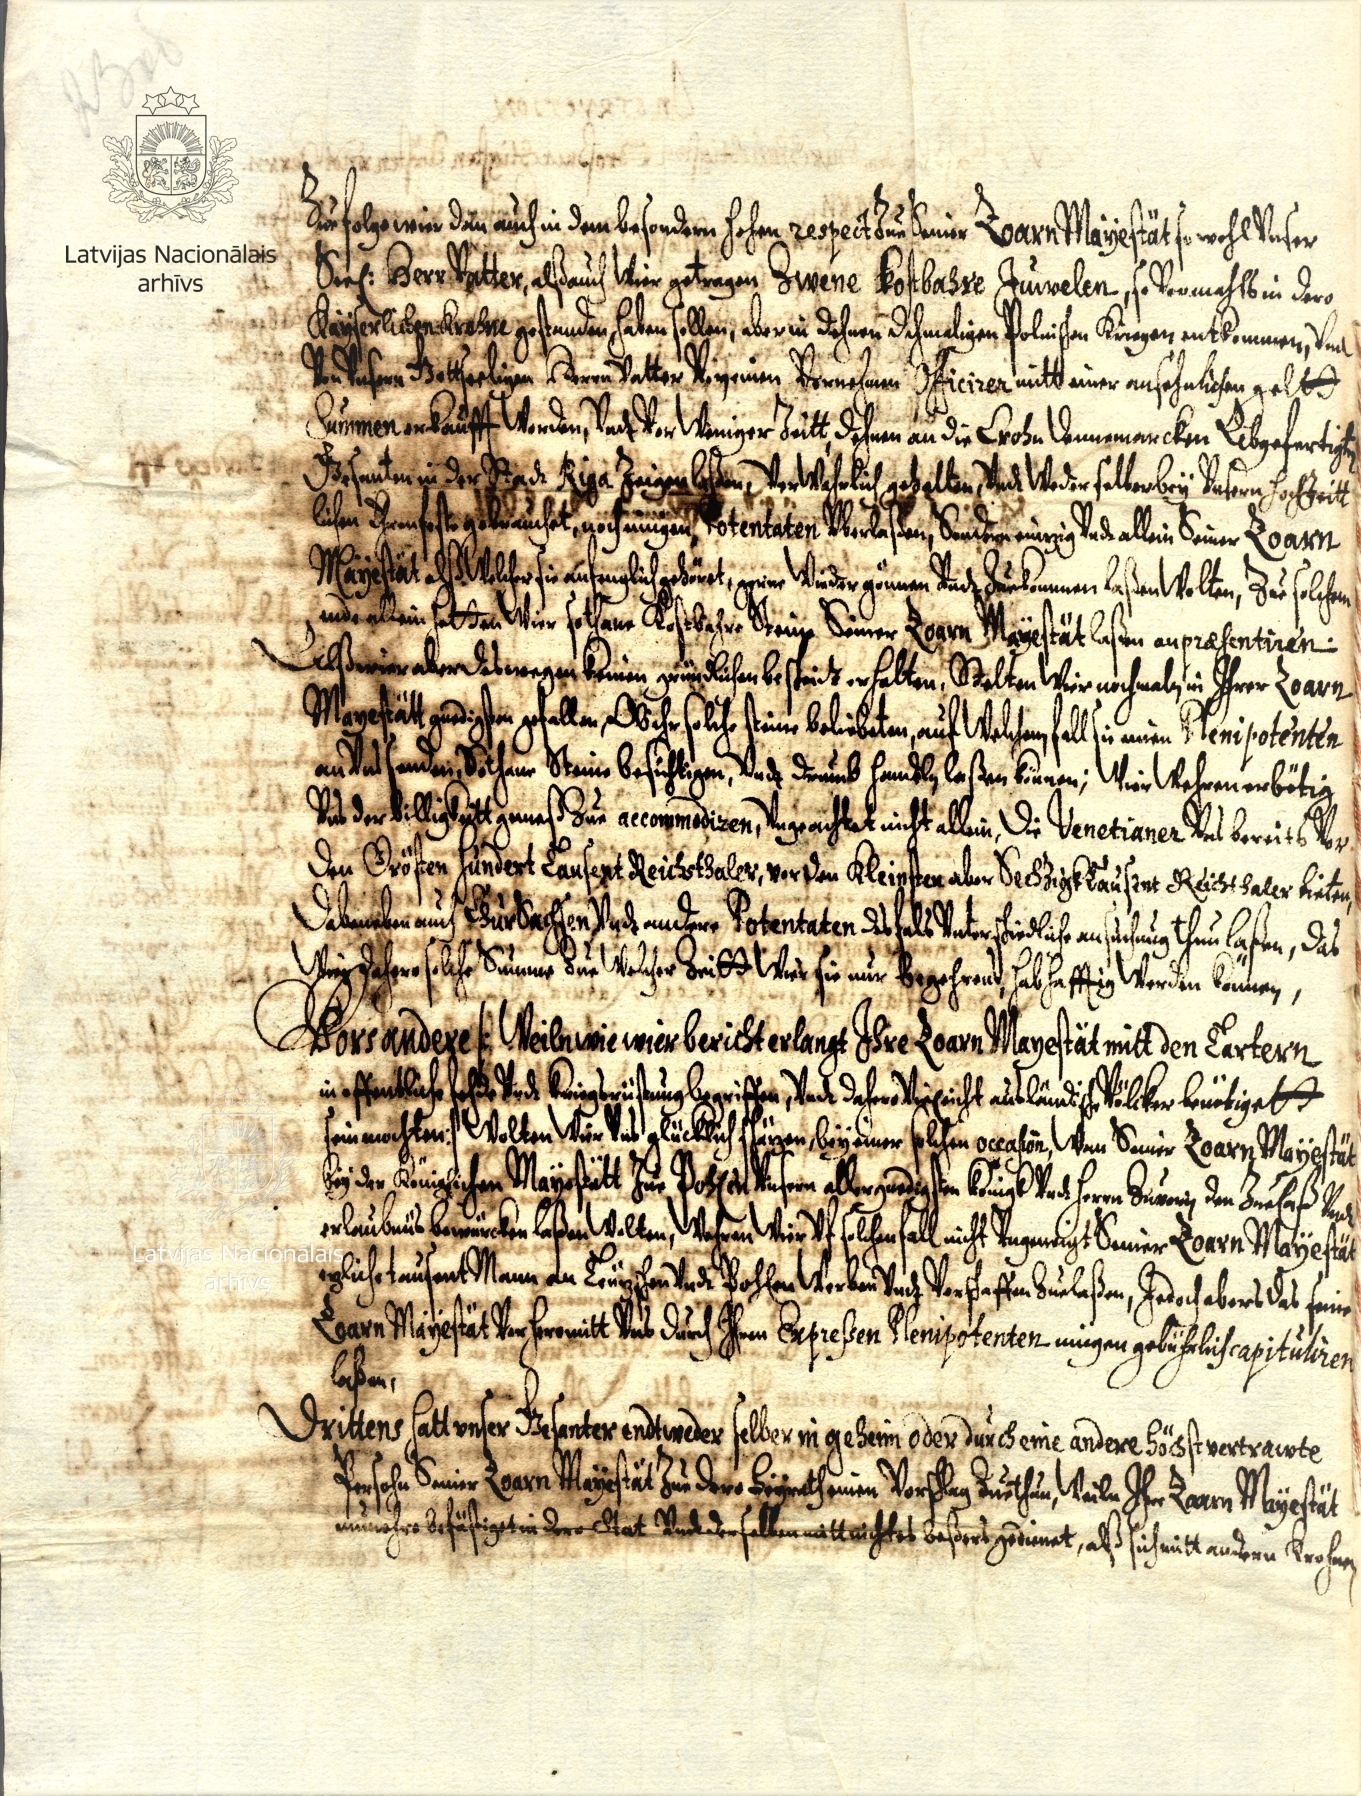 Latvijas Nacionālais
arhīvs
Zue folge wier dan auch in dem besondern hohen respect Zue Seiner Zoarn Mayestät so wohl Unser
Seel: Herr Vatter, alß auch Wier getragen Zwene kostbahre Juwelen, so Vormahls in dero
Kayserlichen Krohne gestanden haben sollen, aber in dehnen dahmaligen Polnischen Kriegen entkommen, Und
Von Unserm Gottseeligen Herrn Vatter Vornehmen Officirer mitt einer ansehnlichen geltt
Summen erkaufft Worden, Undt Vor Weniger Zeitt, dehnen an die Crohn Dennemarcken Abgefertigten
Gesanten in der Stadt Riga Zeigen laßen, Verwahrlich gehalten, Undt Weder selber bey Unserm hochzeitt
lichen Ehrenfeste gebrauchet, noch einigen Potentaten Uberlaßen, Sondern eintzig Undt allein Seiner Zoarn
Mayestät alß Welcher sie anfenglich gehöret, gerne Wieder gönnen Undt Zuekommen laßen Wolten, Zue solchem
ende allein hetten Wier sothane Kostbahre Steine Seiner Zoarn Mayestät laßen anpræsentiren:
Alß wier aber deswegen keinen gründlichen bescheidt erhalten, Stelten Wier nochmaln in Ihrer Zoarn
Mayestätt gnedigsten gefallen, Ob Ihr solche steine beliebeten, auf Welchem fall sie einen Plenipotenten
an Uns senden, Sothane Steine besichtigen, Undt drumb handeln laßen können; Wier Wehren erbötig
Uns der billigkeitt gemeß Zue accommodiren, Ungeachtet nicht allein, Die Venetianer Uns bereits Vor
Den Grösten hundert Tausent Reichsthaler, vor den Kleinsten aber Sechzigk Tausent Reichsthaler bieten,
Daheneben auch Chur Sachsen Undt andere Potentaten desfals Unterschiedliche ansuchung thun laßen, das
Wier dahero solche Summe Zue Welcher Zeitt Wier sie nur begehrend, habhafftig Werden können,
Vors andere /: Weiln wie wier bericht erlangt Ihre Zoarn Mayestät mitt den Tartern
in offentliche fehde Undt Kriegsrüstung begriffen, Undt dahero Vieleicht ausländische Völcker benötigett
sein mochten :/ Wolten Wier Uns glücklich schätzen, bey einer solchen occasion, Wan Seiner Zoarn Mayestät
bey der Königlichen Mayestätt Zue Pohlen Unserm allergnedigsten Könige Undt Herrn Zuvorn den Zuelaß Undt
erlaubnüs bewürcken laßen Wolten, Wehren Wier Uf solchen fall nicht Ungeneigt Seiner Zoarn Mayestät
egliche tausent Mann an Teutschen Undt Pohlen Werben Undt Verschaffen Zuelaßen, Jedoch abers das seine
Zoarn Mayestät Vorhero mitt Uns durch Ihren Expreßen Plenipotenten gebührlich capituliren
laßen,
Drittens hatt unser Gesanter endtweder selber in geheim oder durch eine andere höchst vertrawte
Persohn Seiner Zoarn Mayestät Zue dero Heyrath einen Vorschlag Zuethun, Weiln Ihr Zoarn Mayestät
nunmehro befästiget in dero Stat Undt derselben mitt nichtes beßers gedienet, alß sich mitt andern Krohnen
Latvijas Nacionālais
arhīvs